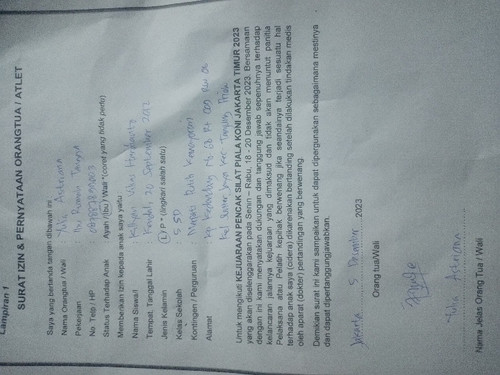 Lampiran 1
SURAT IZIN & PERNYATAAN ORANGTUA / ATLET
Saya yang bertanda tangan dibawah ini
Nama Orangtua / Wali : Yulia
Pekerjaan : Ibu Rumah Tangga
No Telp / HP :
Status Terhadap Anak : Ayah / Ibu / Wali *(coret yang tidak perlu)
Memberikan izin kepada anak saya yaitu
Nama Siswa/i :
Tempat, Tanggal Lahir : 20 September 2012
Jenis Kelamin : L / P * (lingkari salah satu)
Kelas Sekolah : 5 SD
Kontingen / Perguruan : Merpati Putih
Alamat :
Untuk mengikuti KEJUARAAN PENCAK SILAT PIALA KONI JAKARTA TIMUR 2023
yang akan diselenggarakan pada Senin – Rabu, 18 - 20 Desember 2023. Bersamaan
dengan ini kami menyatakan dukungan dan tanggung jawab sepenuhnya terhadap
kelancaran jalannya kejuaraan yang dimaksud dan tidak akan menuntut panitia
Pelaksana atau Pelatih kepihak berwenang jika seandainya terjadi sesuatu hal
terhadap anak saya (cidera) dikarenakan bertanding setelah dilakukan tindakan medis
oleh aparat (dokter) pertandingan yang berwenang.
Demikian surat ini kami sampaikan untuk dapat dipergunakan sebagaimana mestinya
dan dapat dipertanggungjawabkan.
Jakarta 5 Desember 2023
Orang tua/Wali
Yulia
Nama Jelas Orang Tua / Wali